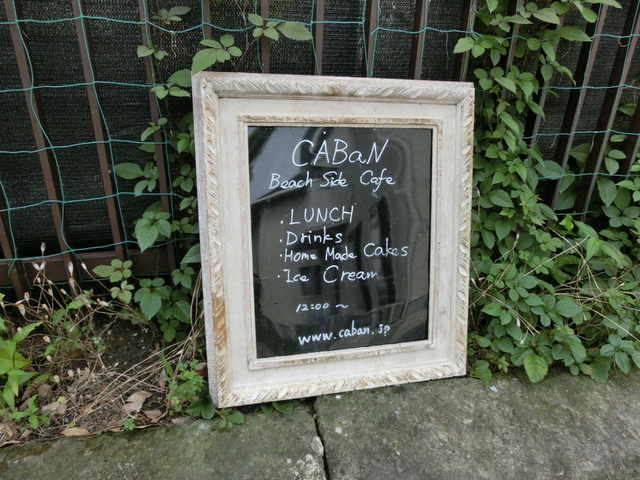 CABaN
Beach Side Cafe
· LUNCH
· Drinks
· Home Made Cakes
· Ice Cream
12:00 ~
www.caban.jp